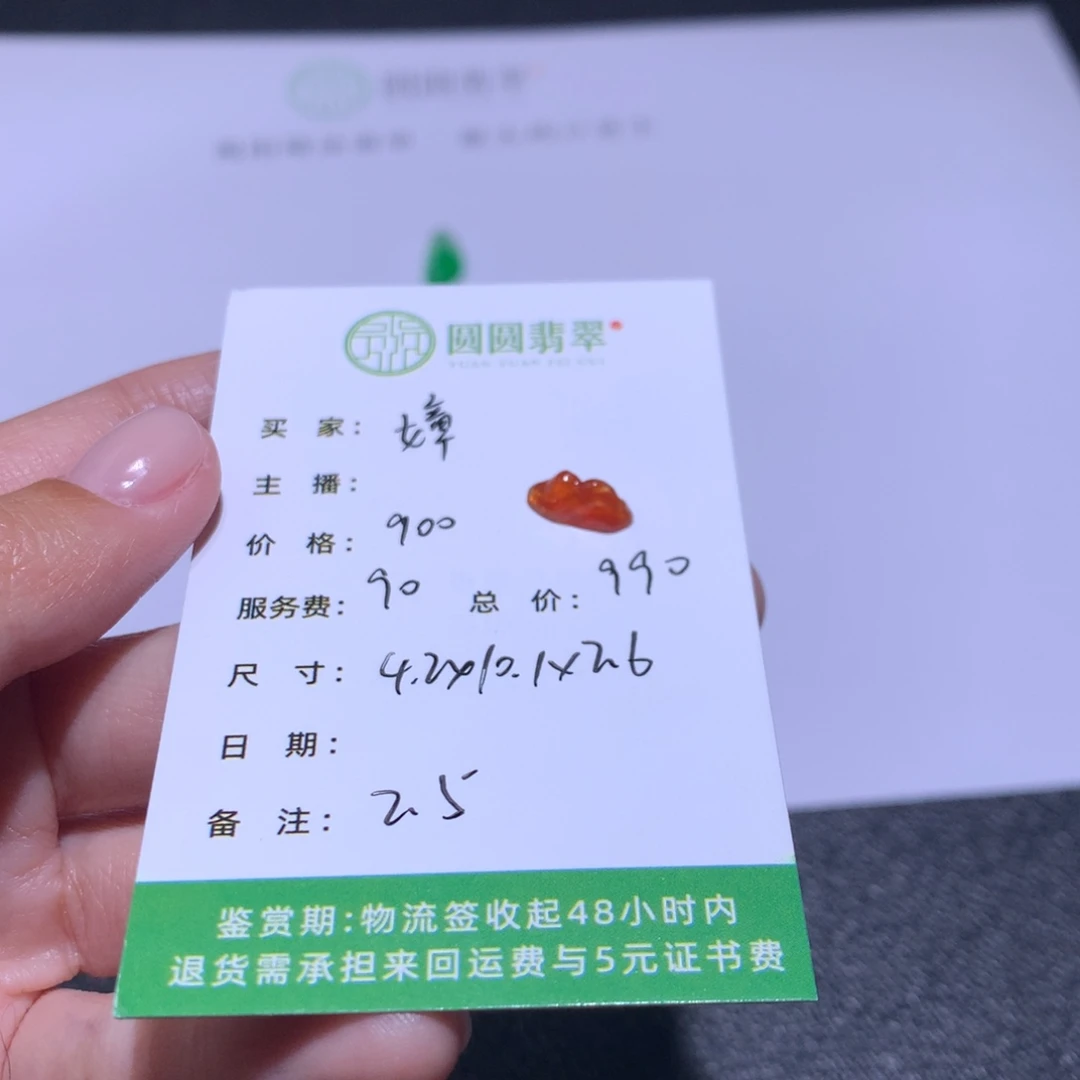 圆圆翡翠
YUAN YUAN FEI CUI
买 家: 嫜
主 播:
价 格: 900
服务费: 90 总 价: 990
尺 寸: 4.2x10.1x2.6
日 期:
备 注: 25
鉴赏期:物流签收起48小时内
退货需承担来回运费与5元证书费